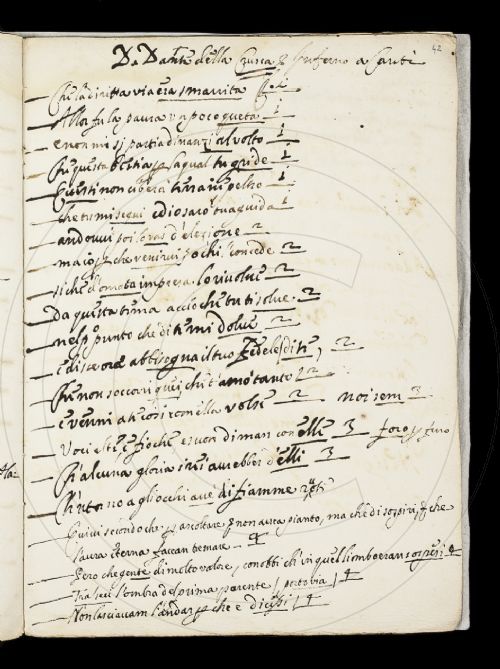 42
Da Dante della Crusca Inferno a Canti
Che la diritta via era smarrita
Allor fu la paura un poco queta 1
e non mi si partia dinanzi al volto 1
Che questa bestia p la qual tu gride 1
Questi non cibera terra ni peltro 1
che tu mi segui ed io saro tua guida 1
andovvi poi lo vas d'elezione 2
ma io p che venirvi, o chi 'l concede 2
si che d'onrata impresa lo rivolve 2
da questa tema accio che tu ti solve 2
nel p.o punto che di te mi dolve 2
e disse ora abbisogna il tuo fedele di te, 2
Che non soccorri quei che t'amo tanto 2
e venni a te cosi com ella volse 2 noi sem 3
Voci alte e fioche e suon di man con elle 3
Ch'alcuna gloria i rei avrebber d'elli 3
Ch'intorno a gli occhi avè di fiamme
Quivi secondo che p ascoltare non avea pianto, ma che di sospiri, che
l'aura eterna facean tremare 4
Pero che gente di molto valore, conobbi ch'in quel limbo eran sospesi 4
Tra sene l'ombra del primo parente 4
Non lasciavam l'andar p che e dicessi 4